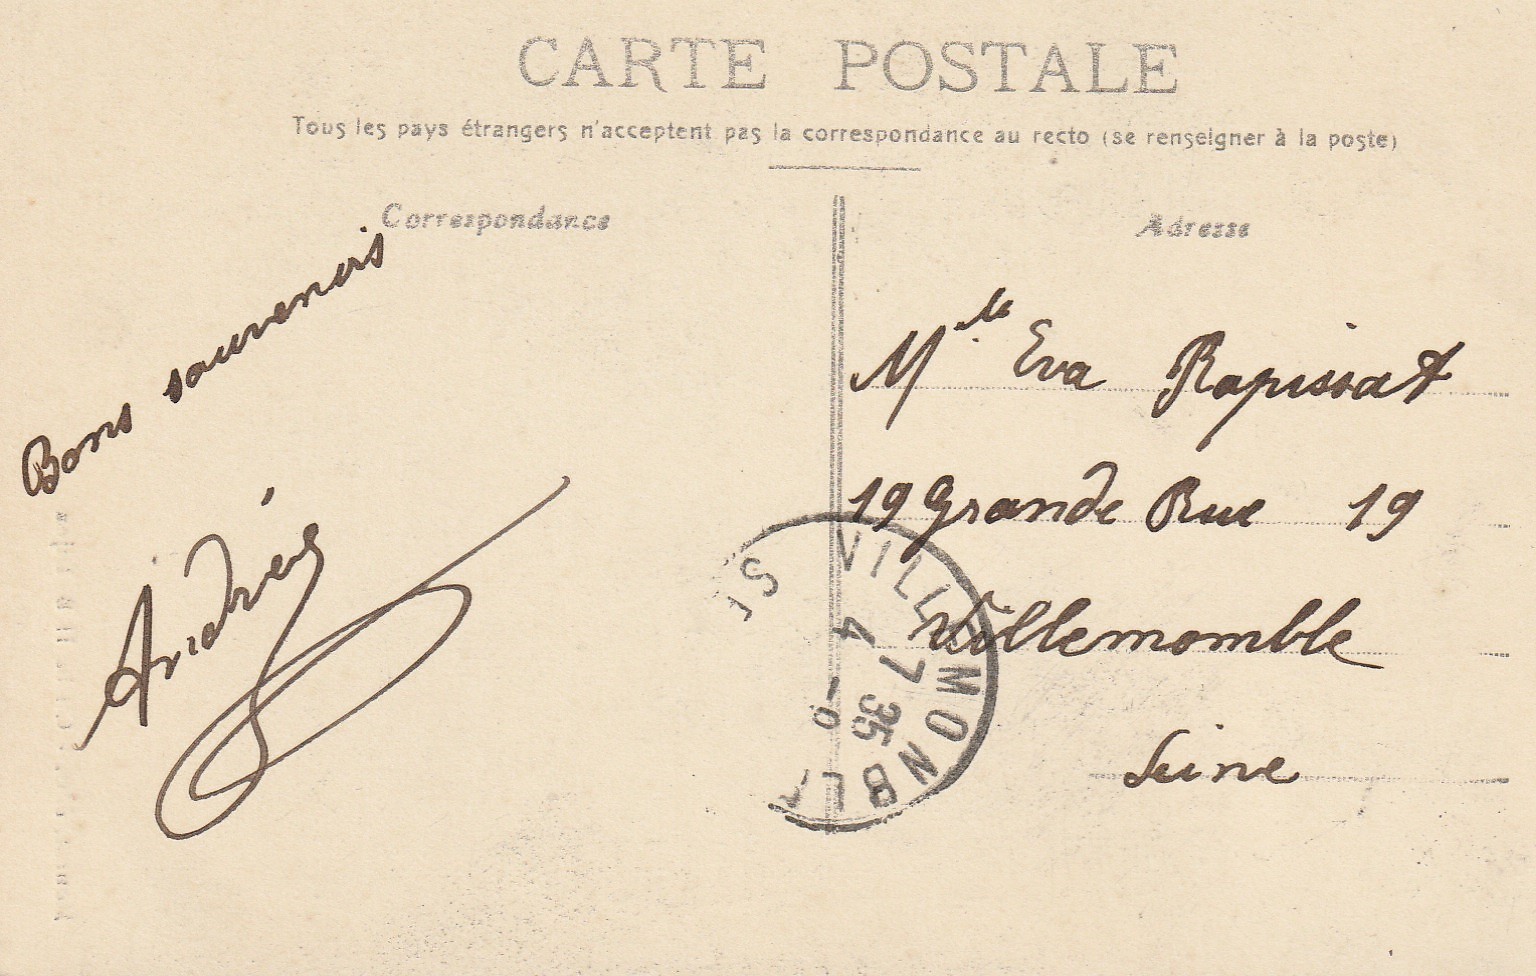 CARTE POSTALE
Tous les pays étrangers n'acceptent pas la correspondance au recto (se renseigner à la poste)
Correspondance
Adresse
Bons souvenirs
Andrée
Mlle Eva Rapissat
19 Grande Rue 19
Villemomble
Seine
VILLEMOMBLE
4 7 35